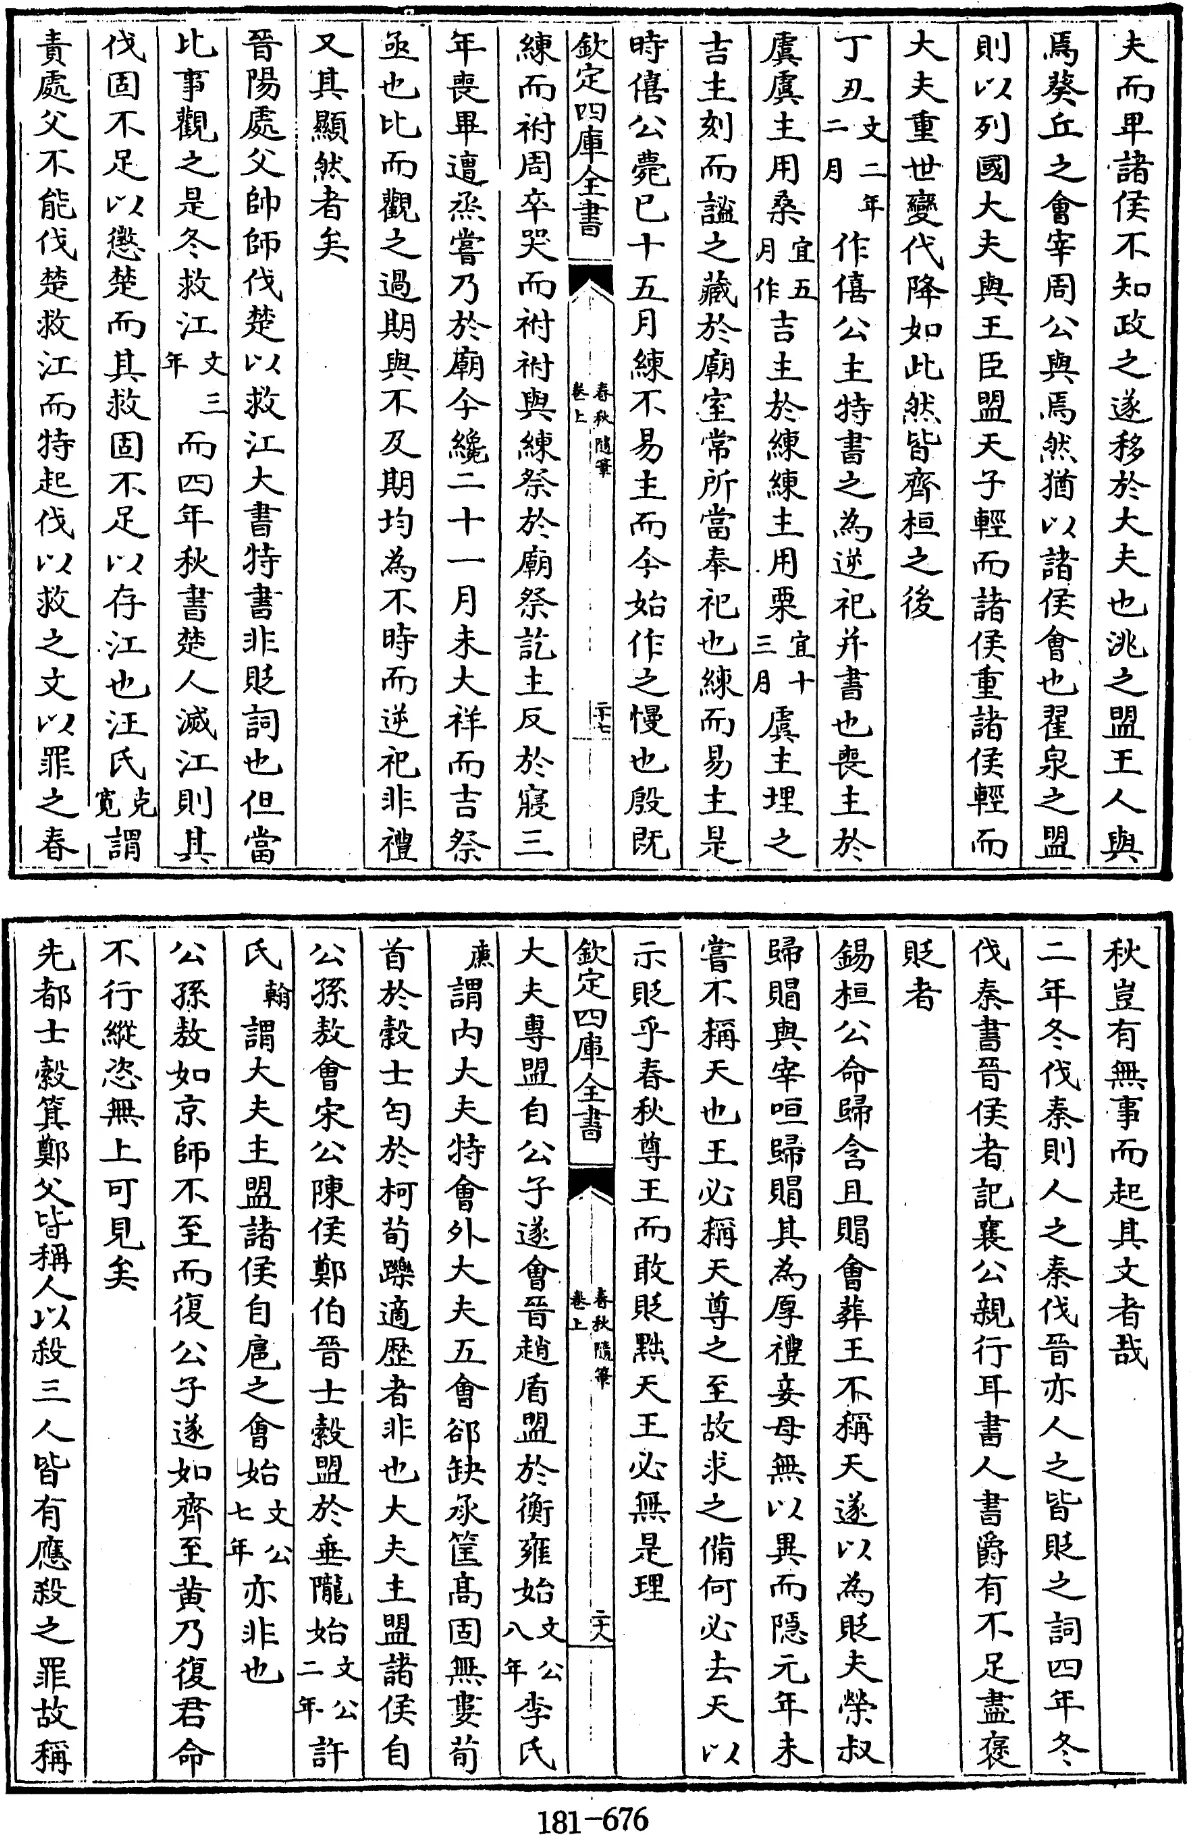 夫而卑諸侯不知政之遂移於大夫也洮之盟王人與
焉葵丘之會宰周公與焉然猶以諸侯會也翟泉之盟
則以列國大夫與王臣盟天子輕而諸侯重諸侯輕而
大夫重世變代降如此然皆齊桓之後
丁丑文二年二月作僖公主特書之為逆祀并書也喪主於
虞虞主用桑宜五月作吉主於練練主用栗宜十三月虞主埋之
吉主刻而謚之藏於廟室常所當奉祀也練而易主是
時僖公薨已十五月練不易主而今始作之慢也殷既
欽定四庫全書
春秋隨筆
卷上
二十七
練而祔周卒哭而祔祔與練祭於廟祭訖主反於寢三
年喪畢遭烝嘗乃於廟今纔二十一月未大祥而吉祭
亟也比而觀之過期與不及期均為不時而逆祀非禮
又其顯然者矣
晉陽處父帥師伐楚以救江大書特書非貶詞也但當
比事觀之是冬救江文三年而四年秋書楚人滅江則其
伐固不足以懲楚而其救固不足以存江也汪氏克寬謂
責處父不能伐楚救江而特起伐以救之文以罪之春
秋豈有無事而起其文者哉
二年冬伐秦則人之秦伐晉亦人之皆貶之詞四年冬
伐秦書晉侯者記襄公親行耳書人書爵有不足盡褒
貶者
錫桓公命歸含且賵會葬王不稱天遂以為貶夫榮叔
歸賵與宰咺歸賵其為厚禮妾母無以異而隱元年未
嘗不稱天也王必稱天尊之至故求之備何必去天以
示貶乎春秋尊王而敢貶黜天王必無是理
欽定四庫全書
春秋隨筆
卷上
二十八
大夫專盟自公子遂會晉趙盾盟於衡雍始文公八年李氏
廉謂内大夫特會外大夫五會郤缺承筐髙固無婁荀
首於穀士匄於柯荀躒適歴者非也大夫主盟諸侯自
公孫敖會宋公陳侯鄭伯晉士縠盟於垂隴始文公二年許
氏翰謂大夫主盟諸侯自扈之會始文公七年亦非也
公孫敖如京師不至而復公子遂如齊至黄乃復君命
不行縱恣無上可見矣
先都士縠箕鄭父皆稱人以殺三人皆有應殺之罪故稱
181-676